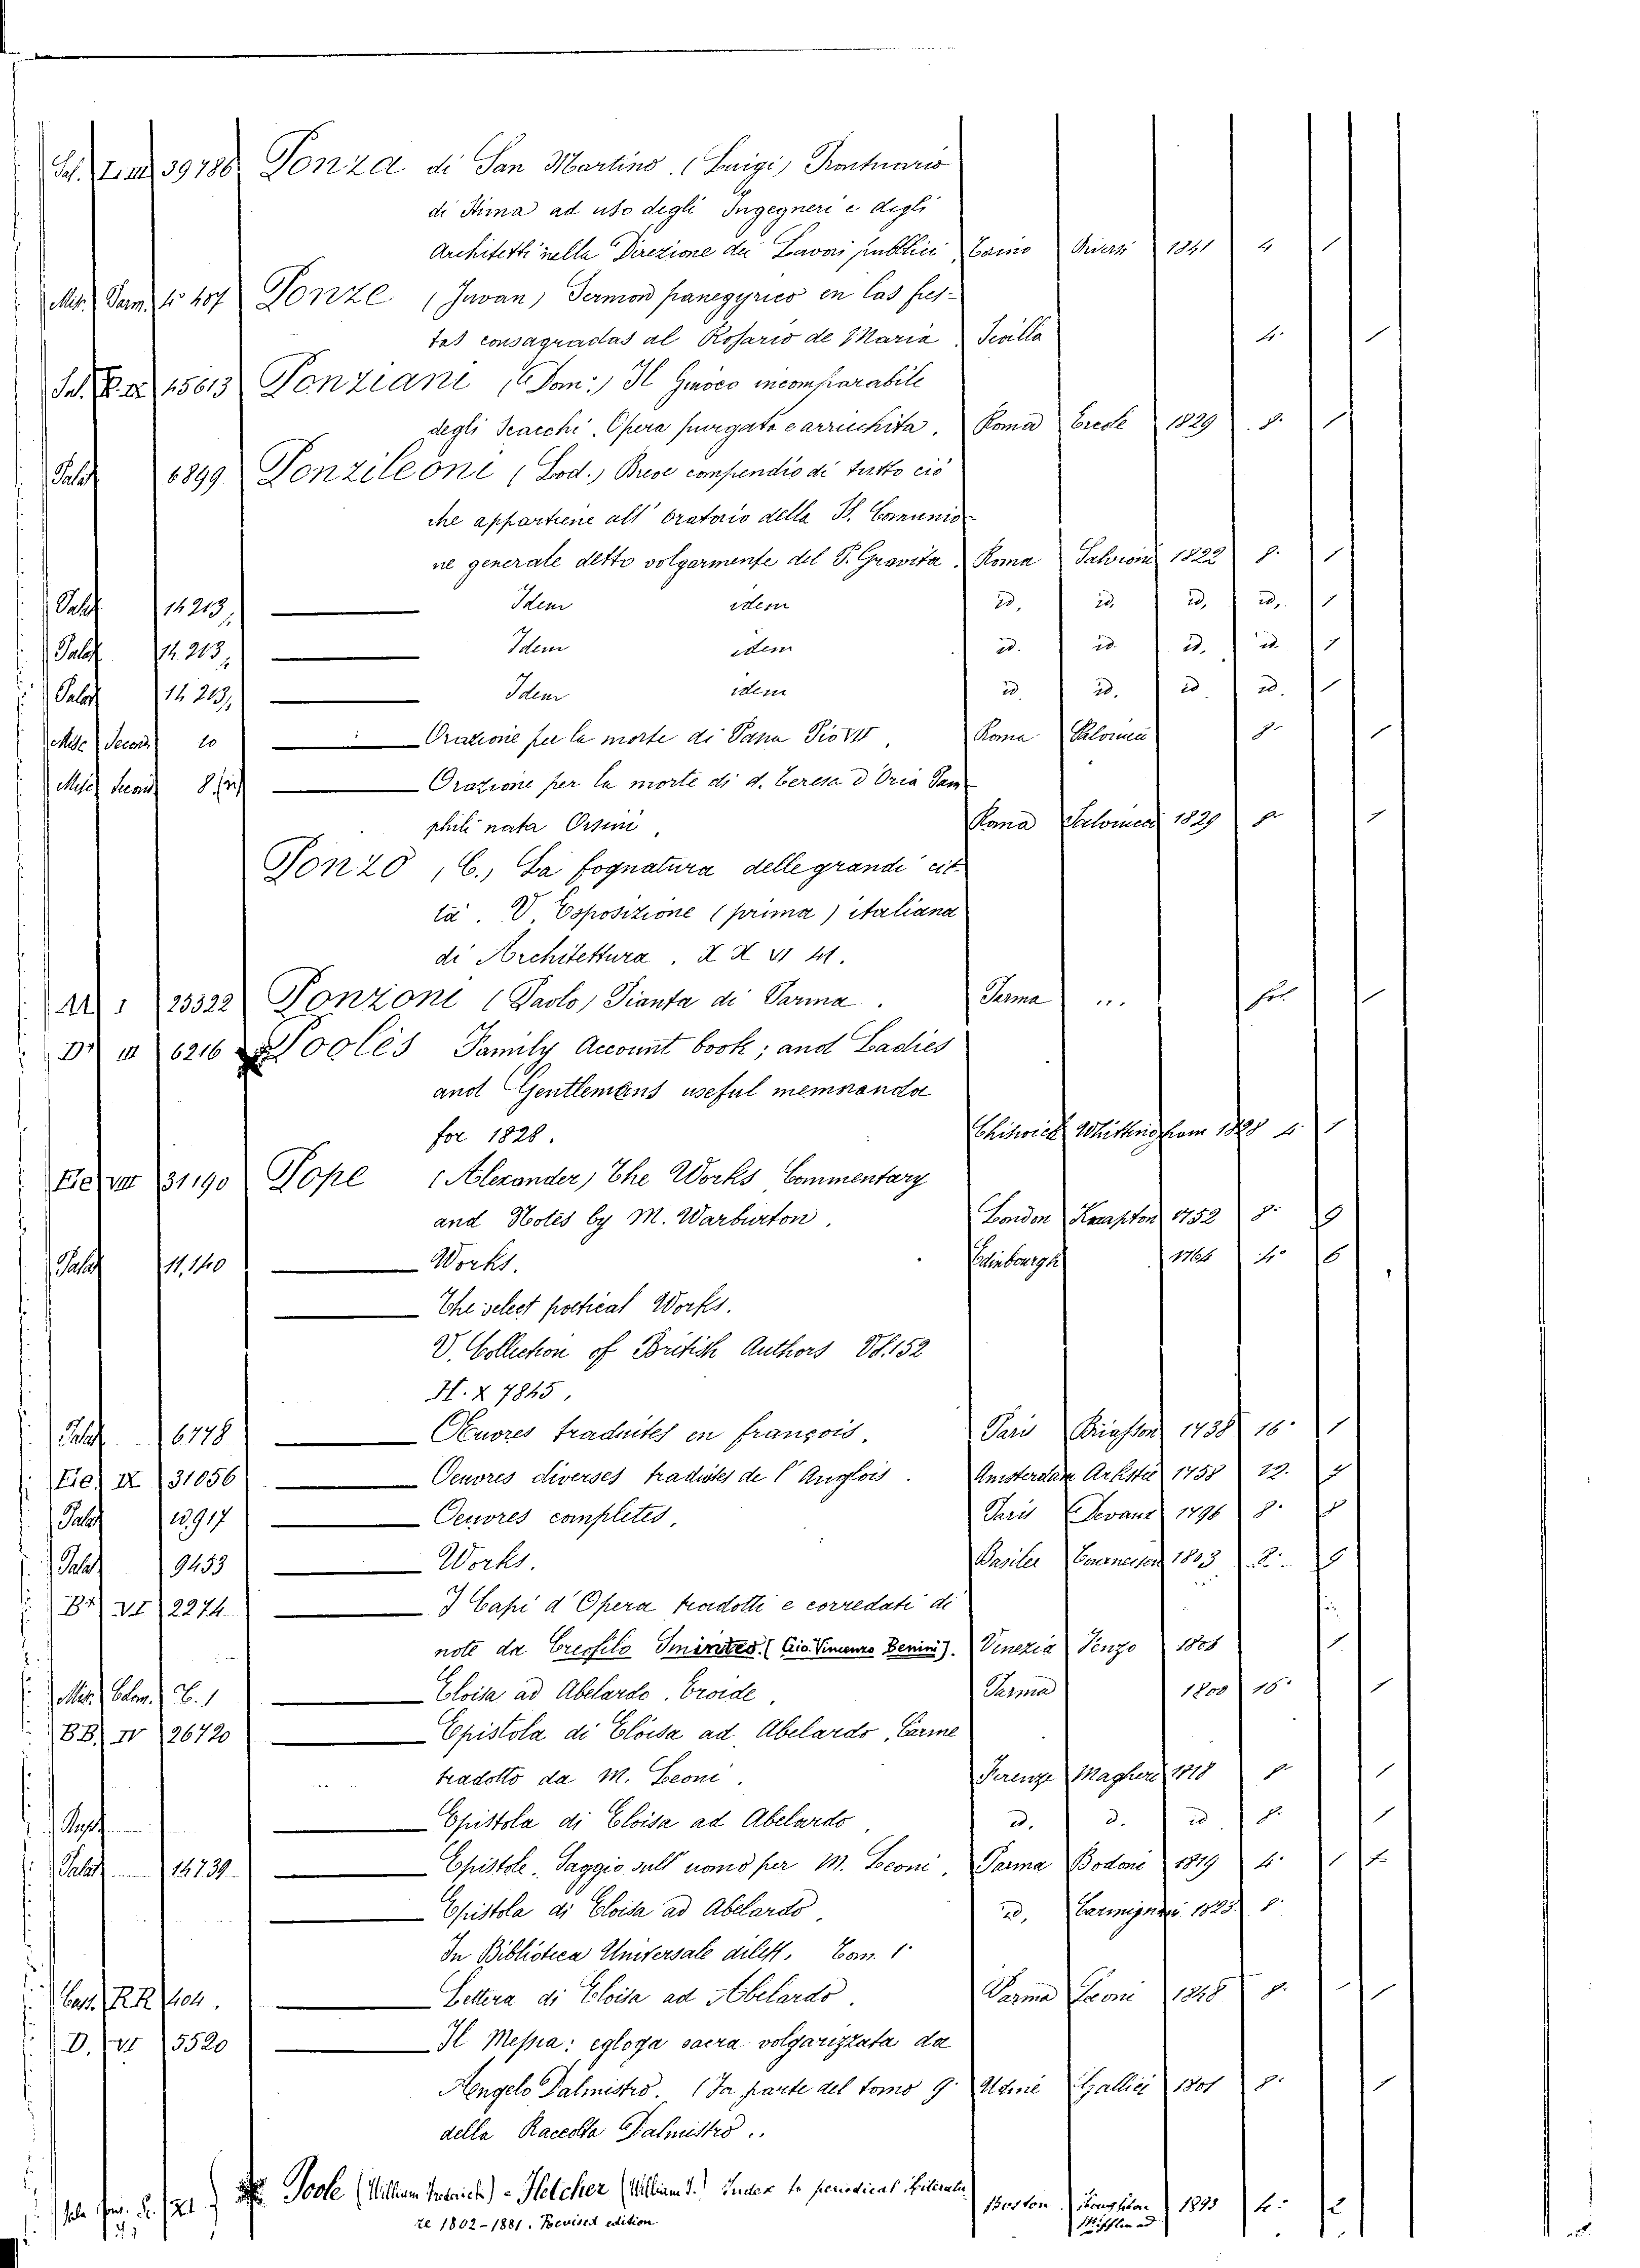 39786 Ponza di San Martino. (Luigi) Prontuario
di Stima ad uso degli Ingegneri e degli
Architetti nella Direzione dei Lavori pubblici 1841 4 1
Ponze (Juvan) Sermon panegyrico en las fies-
tas consagradas al Rosario de Maria Sevilla 4. 1
15613 Ponziani (Dom:) Il Giuoco incomparabile
degli Scacchi. Opera purgata e arricchita. Roma 1829 8. 1
Palat 6899 Ponzileoni (Lod.) Breve compendio di tutto ciò
che appartiene all' Oratorio della S. Comunio-
ne generale detto volgarmente del P. Gravita. Roma Salvioni 1822 8. 1
Palat 14.213, Idem idem id. id. id. id. 1
Palat 14.213, Idem idem id. id. id. id. 1
Palat 14.213, Idem idem id. id. id. id. 1
Misc 10 Orazione per la morte di Papa Pio VII, Roma 8. 1
Misc Orazione per la morte di d. Teresa d'Oria Pam-
phili nata Orsini, Roma 1829 8. 1
Ponzo, C., La fognatura delle grandi cit-
tà. V. Esposizione (prima) italiana
di Architettura. X X VI 41.
1 23322 Ponzoni (Paolo) Pianta di Parma. Parma fol. 1
D. III 6216 Pooles Family Account book; and Ladies
and Gentlemens useful memoranda
for 1828. Chiswick Whittingham 1828 4. 1
31190 Pope (Alexander) The Works, Commentary
and Notes by M. Warburton. London Knapton 1752 8. 9
Palat 11,140 Works. Edinburgh 1764 4. 6
The select poetical Works.
V. Collection of British Authors Vol. 152
H. X 7845.
Palat 6778 Oeuvres traduites en françois. Paris Briasson 1738 16. 1
IX 31056 Oeuvres diverses traduites de l'Anglois. Amsterdam Arkstée 1758 12. 7
Palat 13917 Oeuvres completes, Paris Devaux 1796 8. 8
Palat 9453 Works. Basilea 1803 8. 9
B. VI 2274 I Capi d'Opera tradotti e corredati di
note da Creofilo Sminteo. (Gio. Vincenzo Benini). Venezia 1808 1
Misc. Colom. B. 1 Eloisa ad Abelardo. Eroide, Parma 1800 16. 1
BB. IV 26720 Epistola di Eloisa ad Abelardo, Carme
tradotto da M. Leoni. Firenze Magheri 1818 8. 1
Epistola di Eloisa ad Abelardo, id. d. id 8. 1
Palat 14739 Epistole. Saggio sull' uomo per M. Leoni. Parma Bodoni 1819 4. 1
Epistola di Eloisa ad Abelardo, id. Carmignani 1825. 8.
In Biblioteca Universale dilett. Tom. 1.
RR Lettera di Eloisa ad Abelardo. Parma Leoni 1848 8. 1
D. VI 5520 Il Messia: egloga sacra volgarizzata da
Angelo Dalmistro. (Fa parte del tomo 9. Udine Gallici 1801 8. 1
della Raccolta Dalmistro..
Poole (William Frederick) - Fletcher (William I.) Index to periodical literatu-
re 1802-1881. Revised edition. Boston Houghton Mifflin ed 1893 4. 2